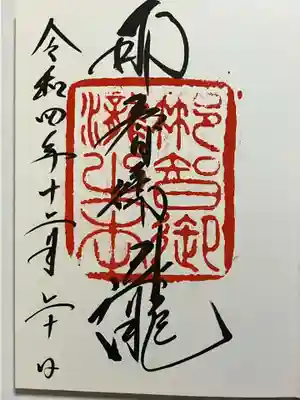 那智御瀧
那智御
令和四年十二月二十日